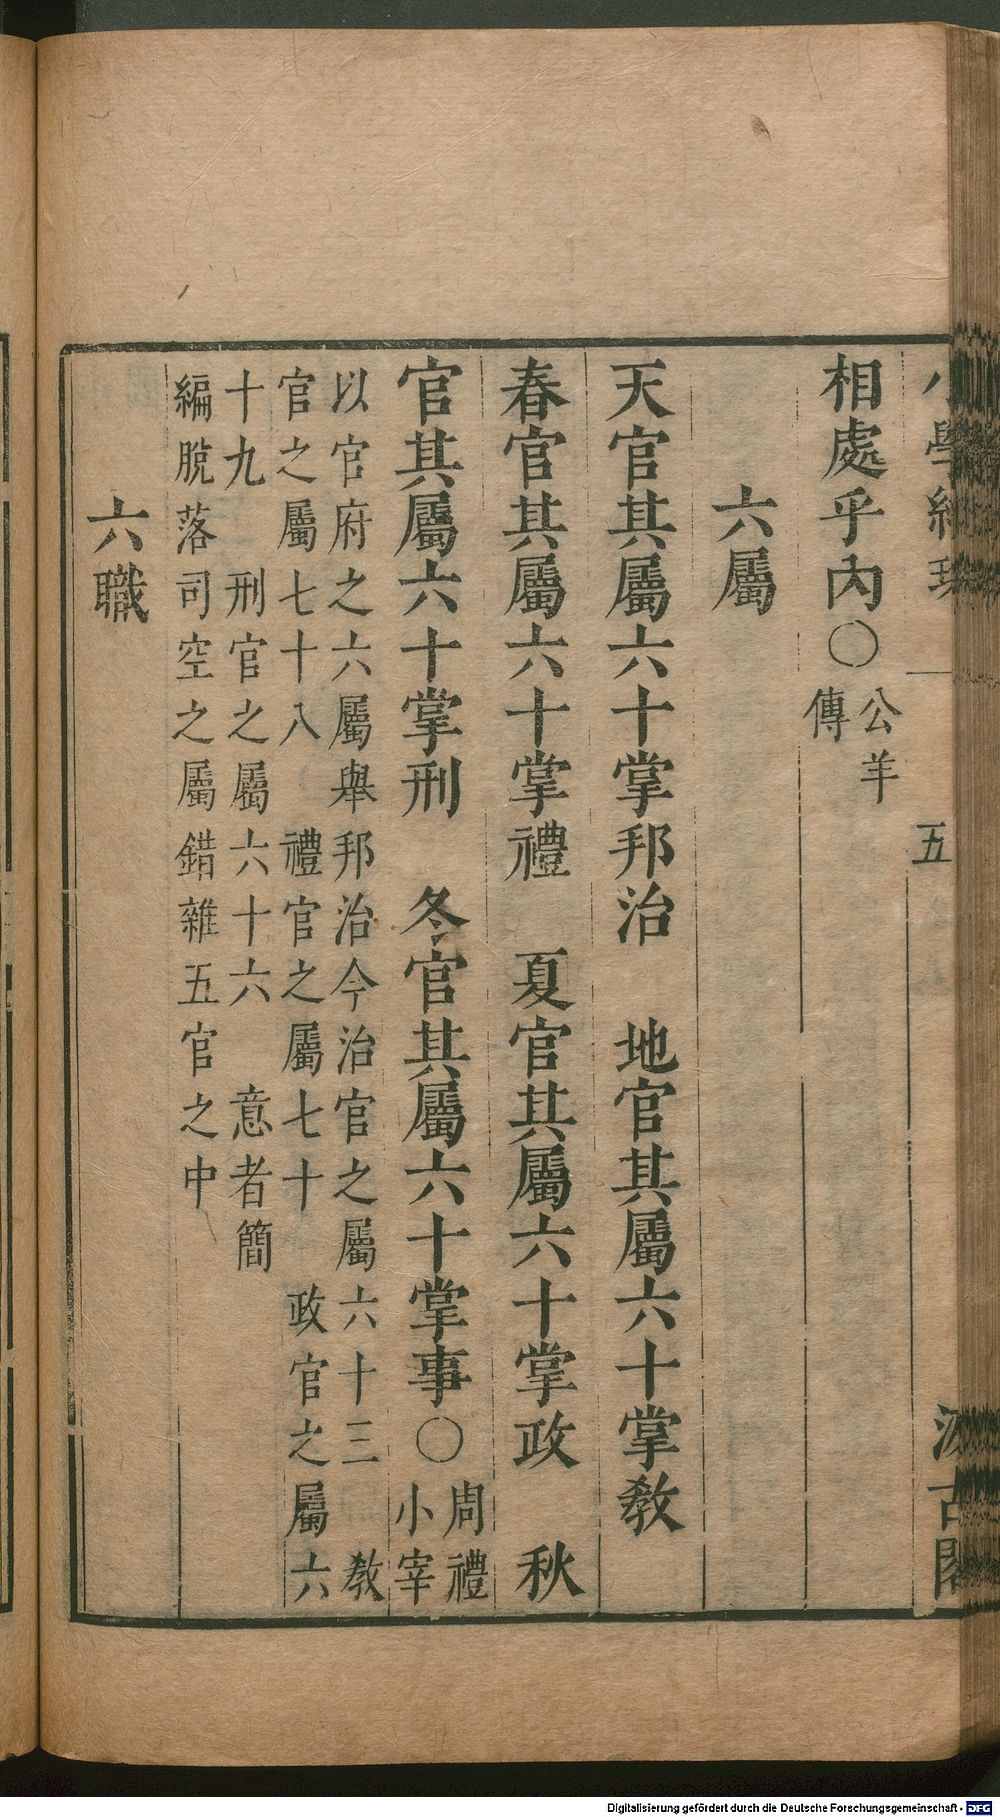 小學紺珠
五
汲古閣
相處乎內〇公羊
傳
六屬
天官其屬六十掌邦治　地官其屬六十掌敎
春官其屬六十掌禮　夏官其屬六十掌政　秋
官其屬六十掌刑　冬官其屬六十掌事〇周禮
小宰
以官府之六屬舉邦治今治官之屬六十三　敎
官之屬七十八　禮官之屬七十　政官之屬六
十九　刑官之屬六十六　意者簡
編脫落司空之屬錯雜五官之中
六職
Digitalisierung gefördert durch die Deutsche Forschungsgemeinschaft - DFG